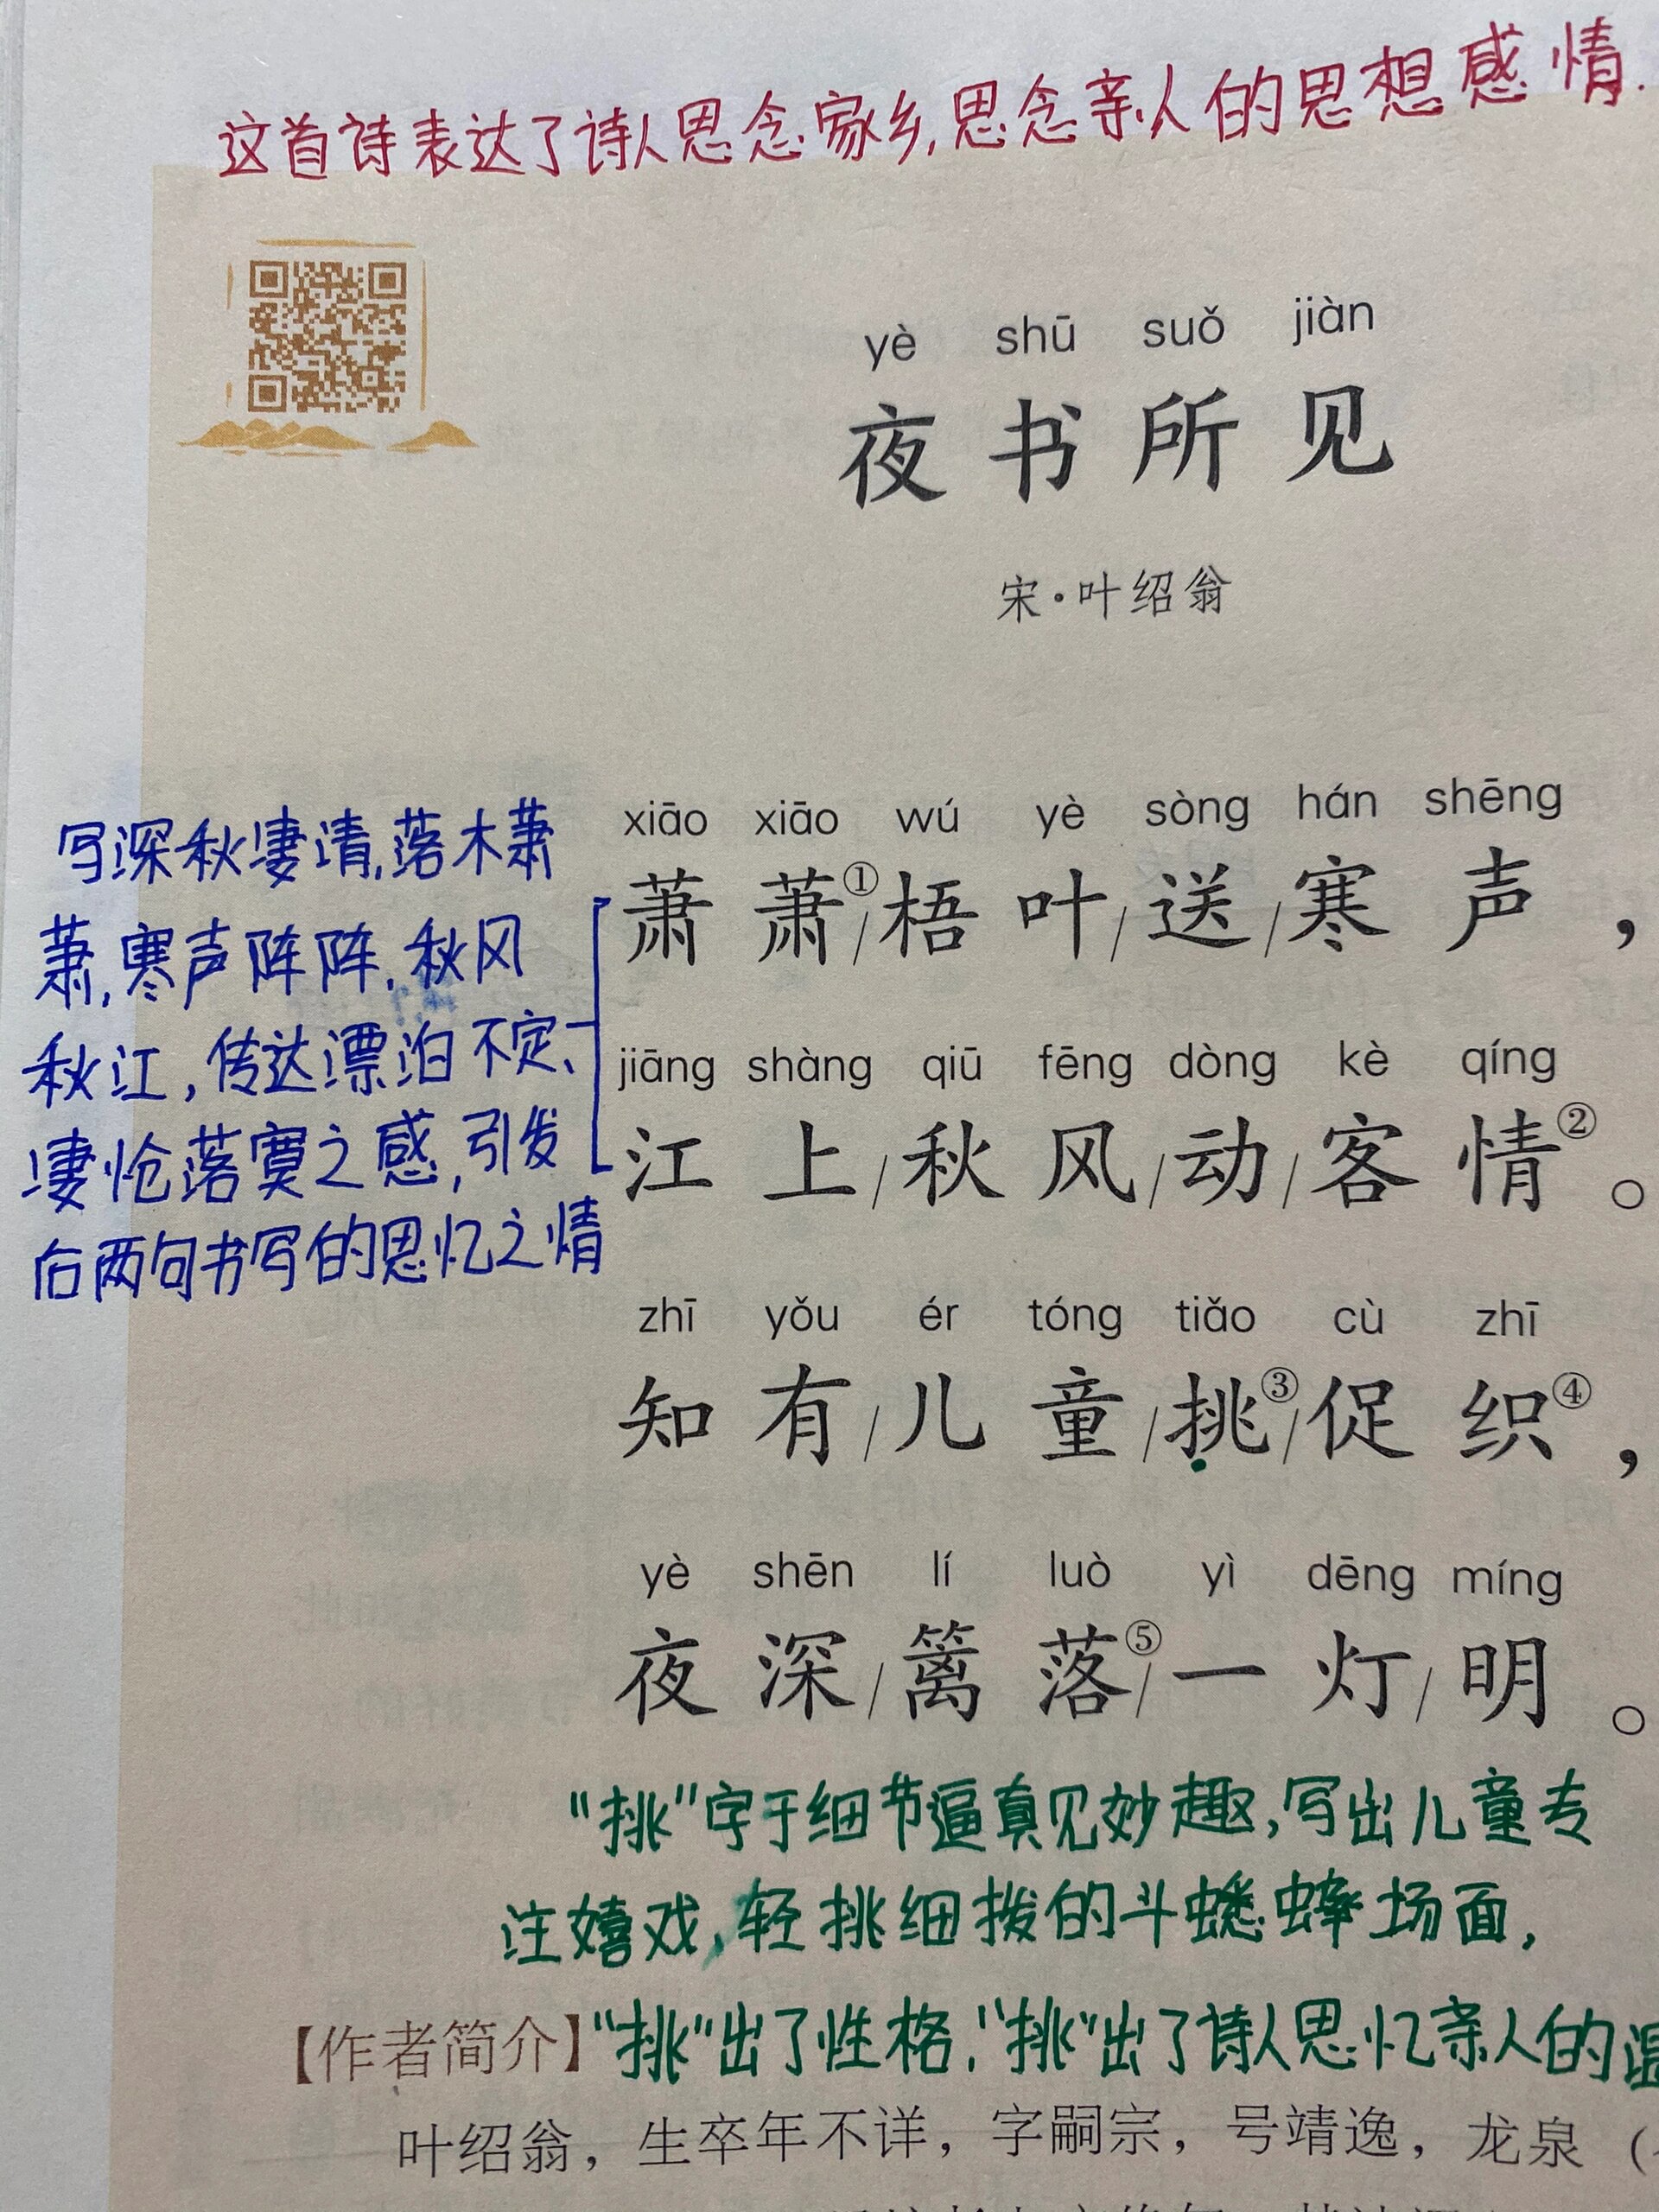 这首诗表达了诗人思念家乡,思念亲人的思想感情.
yè shū suǒ jiàn
夜书所见
宋·叶绍翁
xiāo xiāo wú yè sòng hán shēng
萧萧①/梧叶/送/寒声，
jiāng shàng qiū fēng dòng kè qíng
江上/秋风/动/客情②。
zhī yǒu ér tóng tiǎo cù zhī
知有/儿童/挑③/促织④，
yè shēn lí luò yì dēng míng
夜深/篱落⑤/一灯/明。
写深秋凄清,落木萧
萧,寒声阵阵,秋风
秋江,传达漂泊不定、
凄怆落寞之感,引发
后两句书写的思忆之情
“挑”字于细节逼真见妙趣,写出儿童专
注嬉戏,轻挑细拨的斗蟋蟀场面,
【作者简介】“挑”出了性格,“挑”出了诗人思忆亲人的
叶绍翁，生卒年不详，字嗣宗，号靖逸，龙泉（